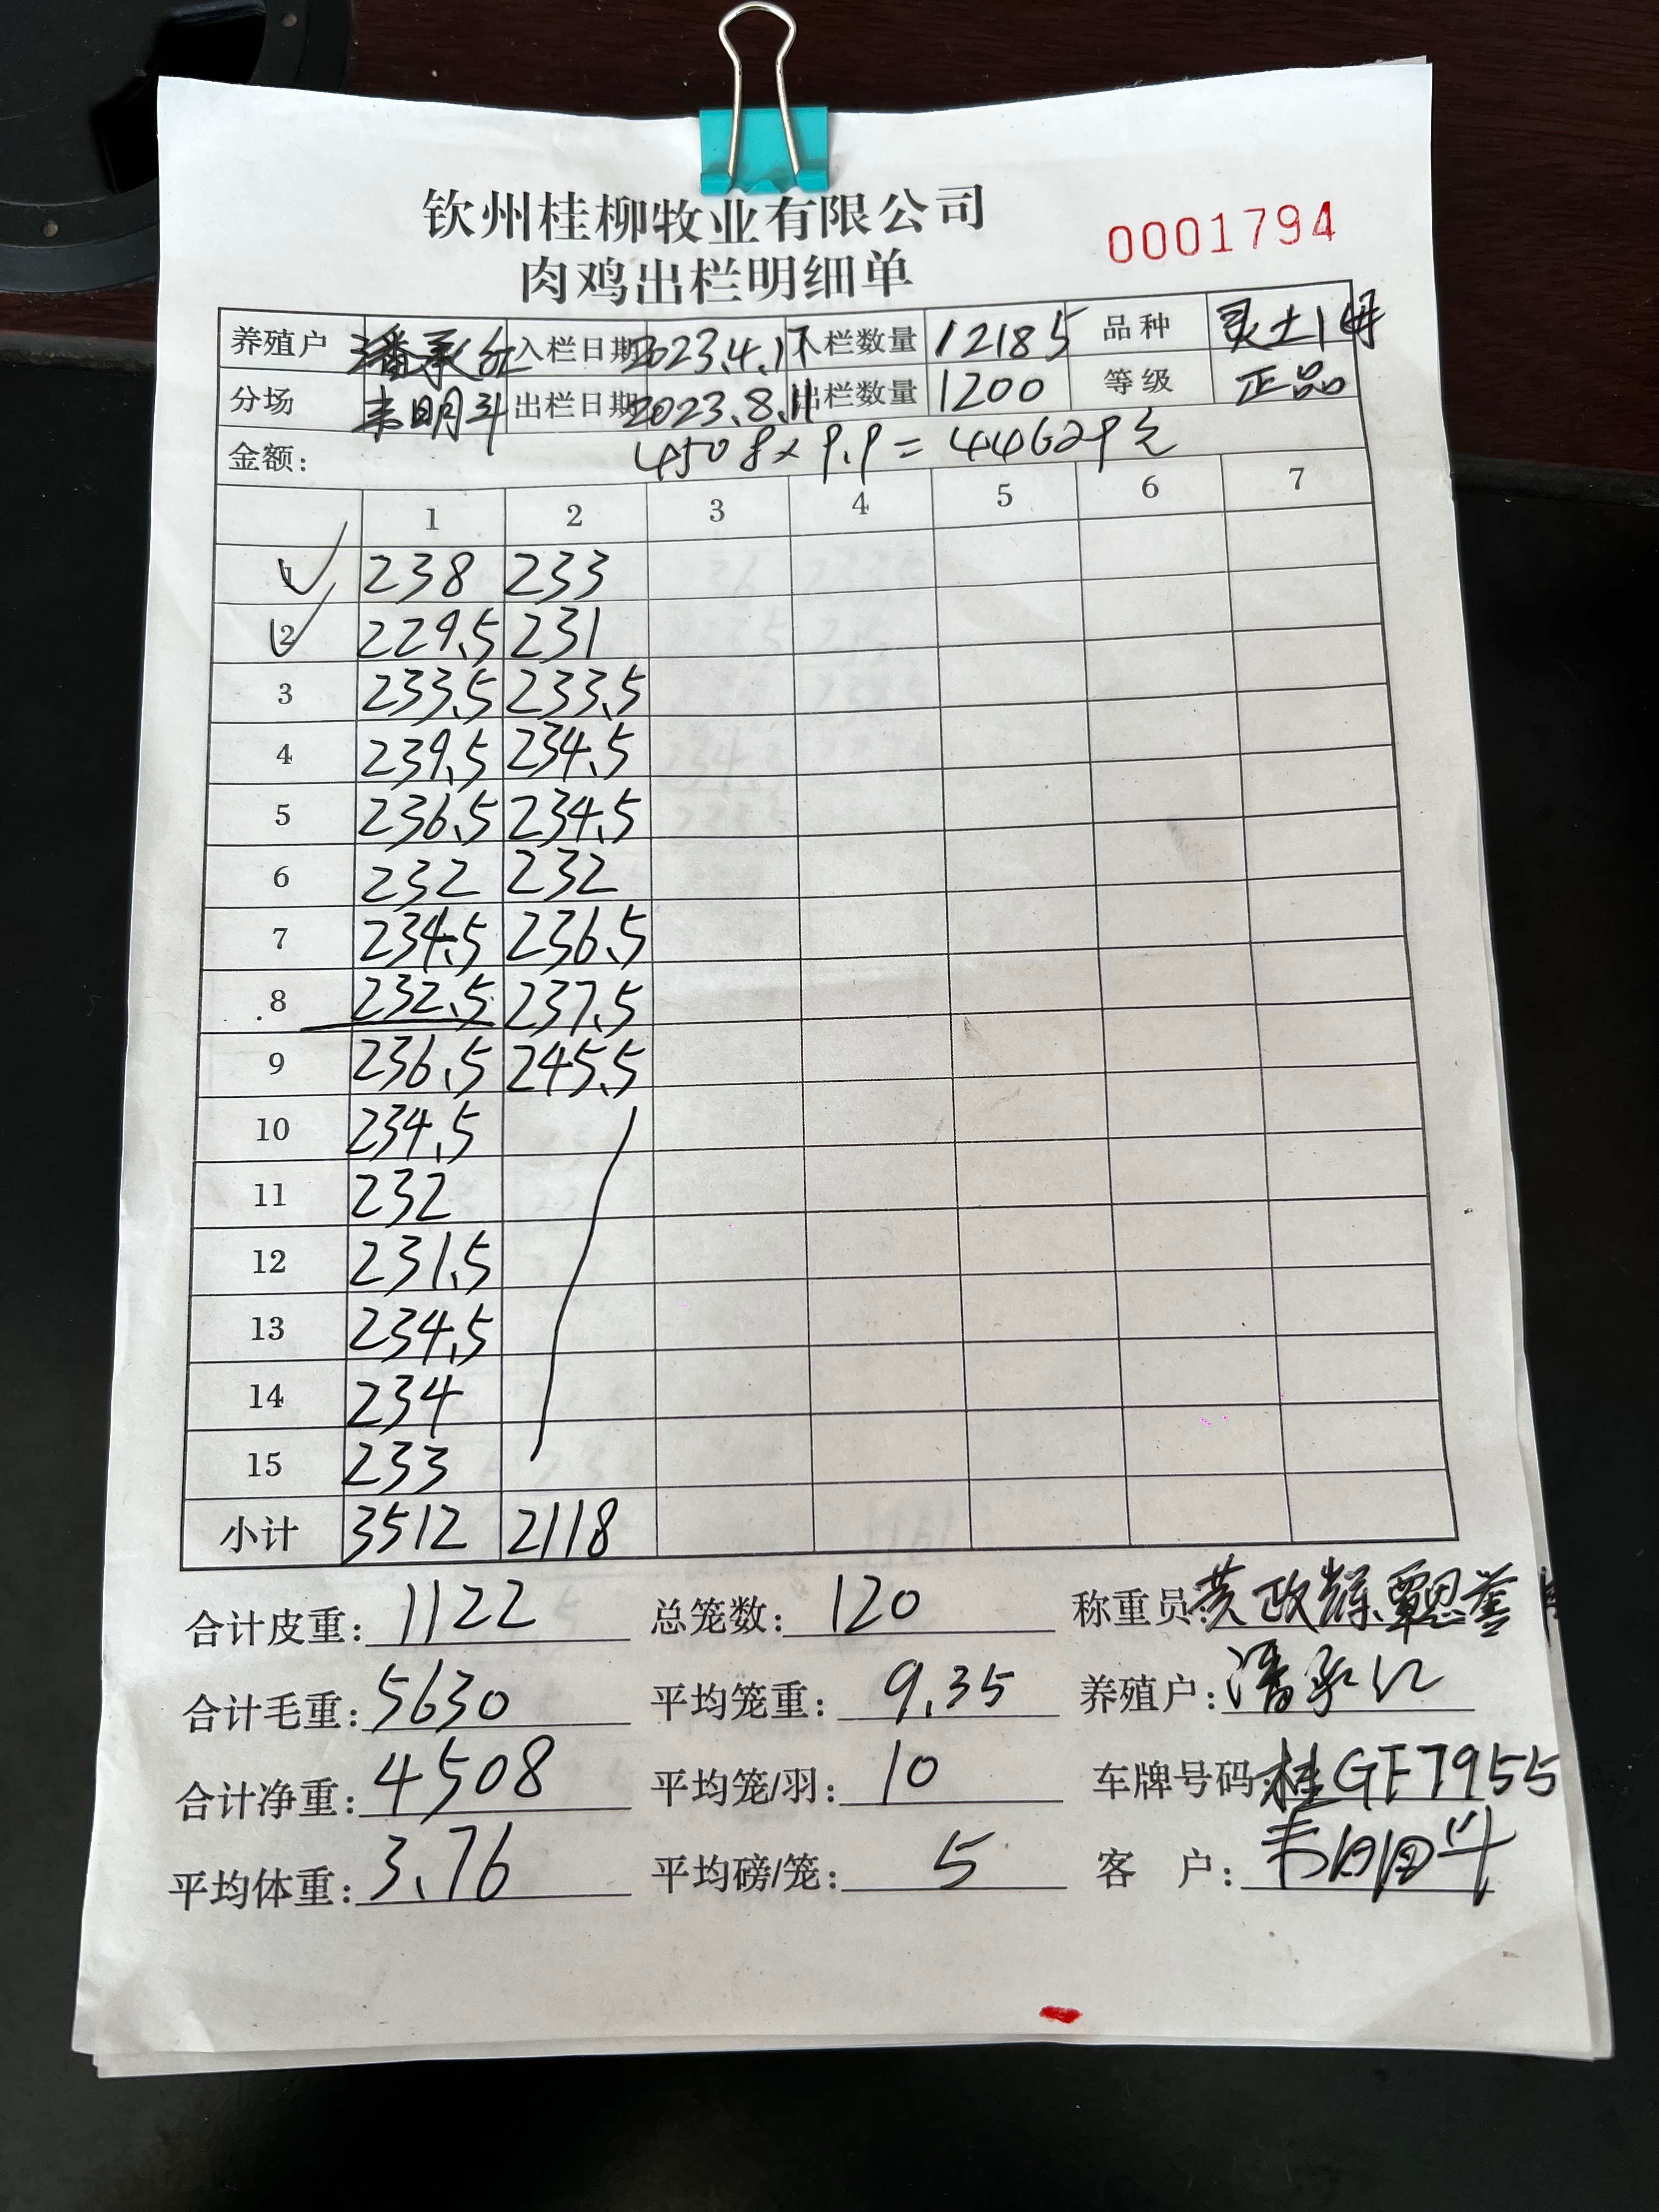 钦州桂柳牧业有限公司
0001794
肉鸡出栏明细单
养殖户 潘承 入栏日期 2023.4.17 入栏数量 12185 品种 灵土1
分场 韦明斗 出栏日期 2023.8.11 出栏数量 1200 等级 正品
金额: 4508×9.9=44629元
1 2 3 4 5 6 7
1 238 233
2 229.5 231
3 233.5 233.5
4 239.5 234.5
5 236.5 234.5
6 232 232
7 234.5 236.5
8 232.5 237.5
9 236.5 245.5
10 234.5
11 232
12 231.5
13 234.5
14 234
15 233
小计 3512 2118
合计皮重: 1122 总笼数: 120 称重员: 黄政辉、覃恩誉
合计毛重: 5630 平均笼重: 9.35 养殖户: 潘承
合计净重: 4508 平均笼/羽: 10 车牌号码: 桂GF7955
平均体重: 3.76 平均磅/笼: 5 客户: 韦明斗